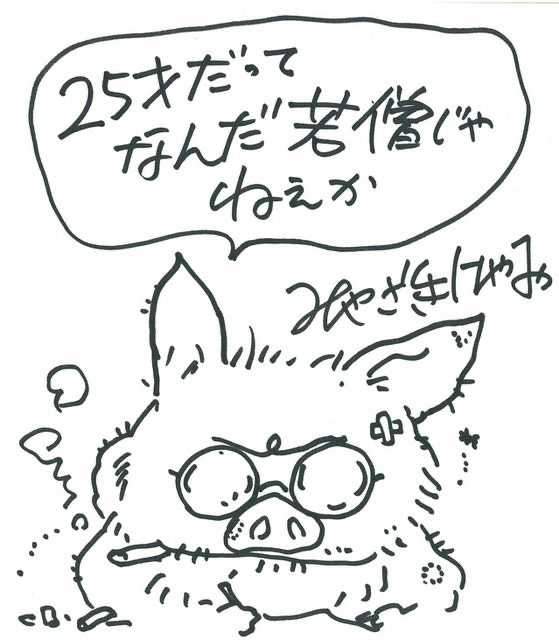 25才だって
なんだ若僧じゃ
ねぇか
みやざきはやお